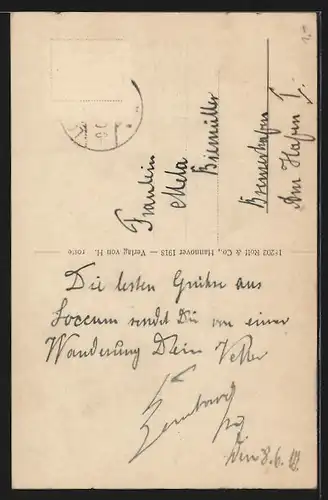 Fräulein
Meta
Bremerhafen
Am Hafen
18202 Rott & Co., Hannover 1913 — Verlag von H.
Die besten Grüße aus
Loccum sendet Dir von einer
Wanderung Dein Vetter
Den 8.6.